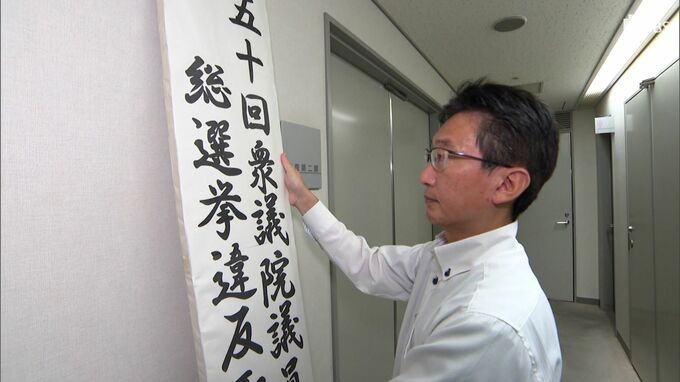 五十回衆議院議員
総選挙違反